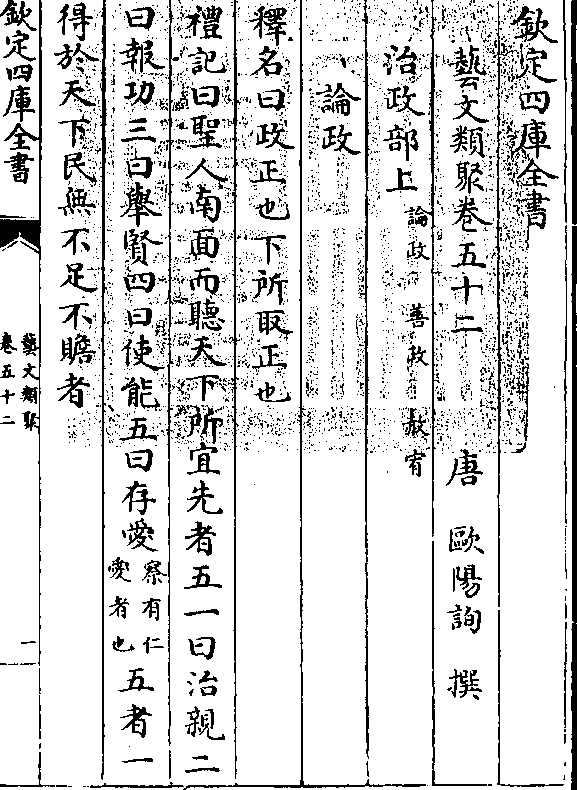 欽定四庫全書
藝文類聚卷五十二　唐　歐陽詢　撰
治政部上　論政　善政　赦宥
論政
釋名曰政正也下所取正也
禮記曰聖人南面而聽天下所宜先者五一曰治親二
曰報功三曰舉賢四曰使能五曰存愛察有仁愛者也五者一
得於天下民無不足不贍者
欽定四庫全書
藝文類聚
卷五十二
一